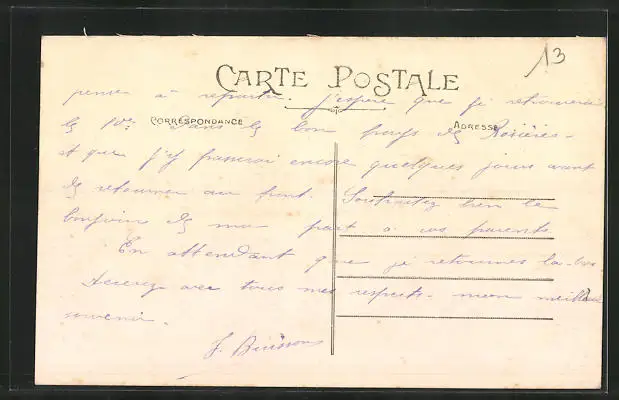 13
CARTE POSTALE
pense à repartir. J'espère que je retrouverai
CORRESPONDANCE
ADRESSE
dans le bon pays de Rosières
et que j'y passerai encore quelques jours avant
de retourner au front. Souhaitez bien le
bonjour de ma part à vos parents.
En attendant que je retourne là-bas
Recevez avec tous mes respects mon meilleur
souvenir.
J. Buisson